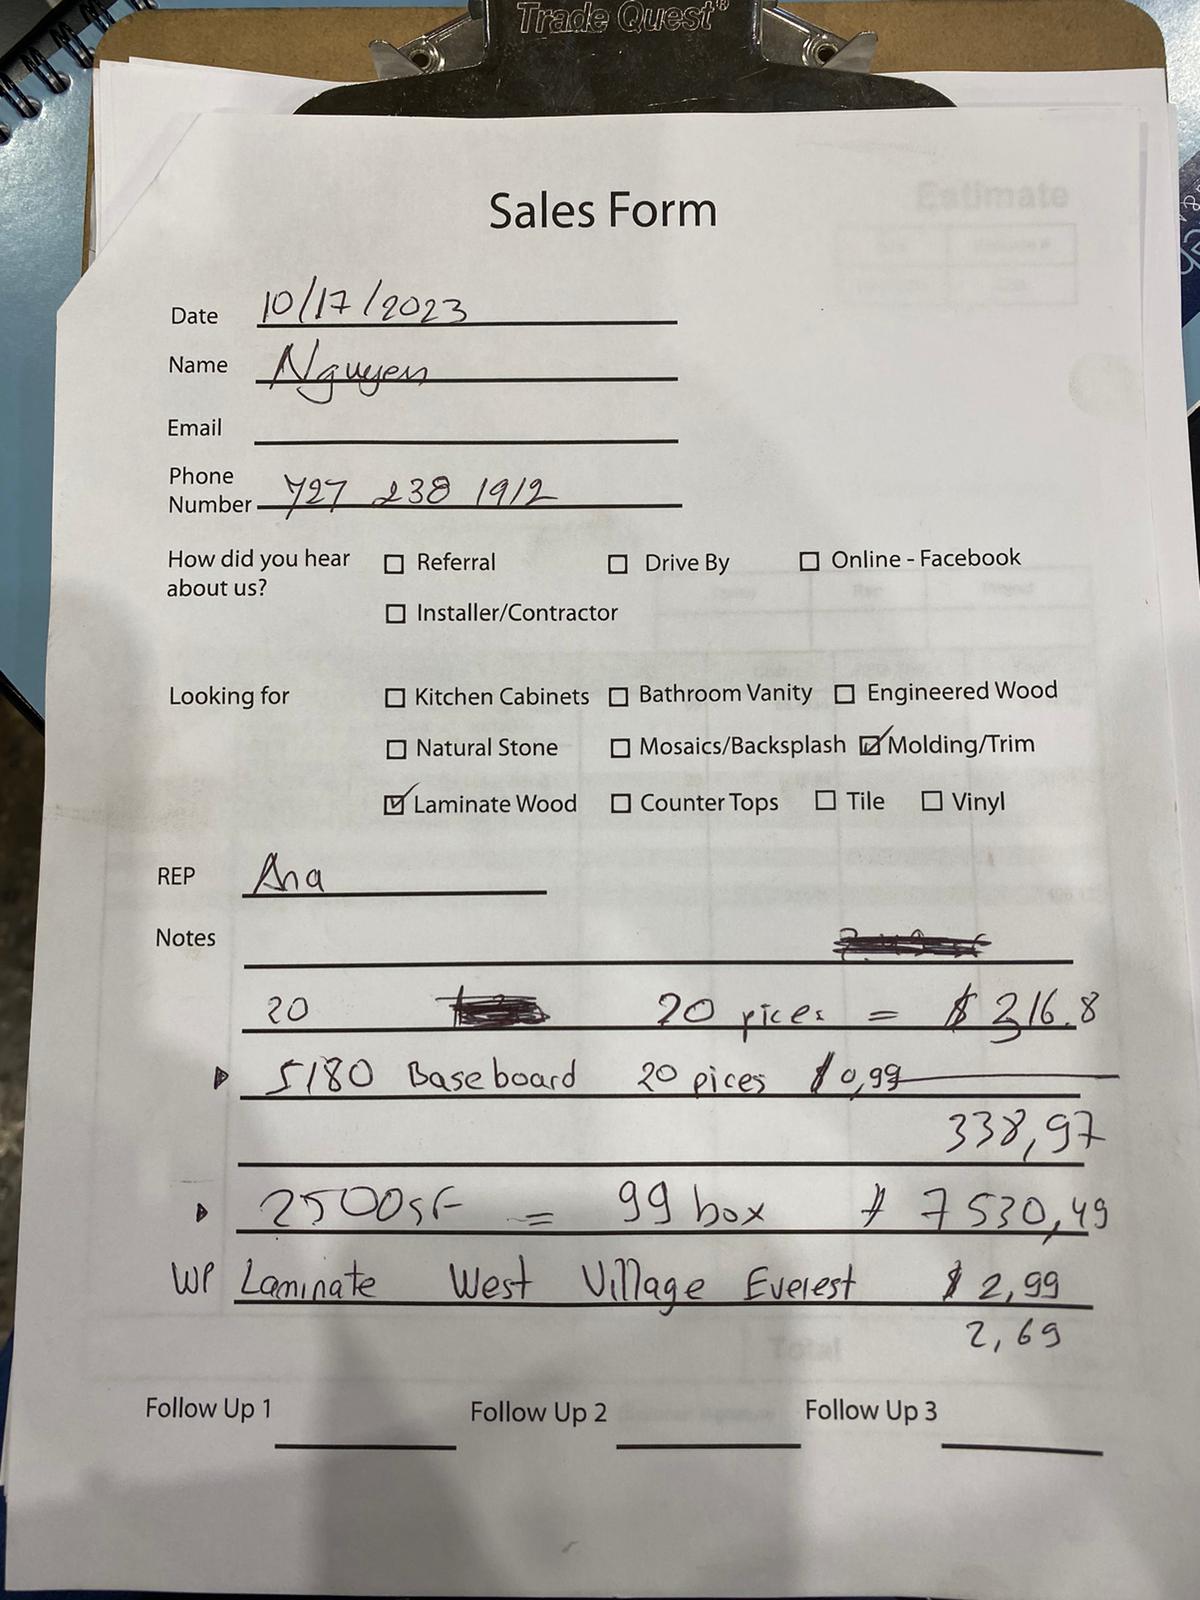 Trade Quest®
Sales Form
Estimate
Date 10/17/2023
Name Nguyen
Email
Phone
Number 727 238 1912
How did you hear about us? ☐ Referral ☐ Drive By ☐ Online - Facebook
☐ Installer/Contractor
Looking for ☐ Kitchen Cabinets ☐ Bathroom Vanity ☐ Engineered Wood
☐ Natural Stone ☐ Mosaics/Backsplash ☑ Molding/Trim
☑ Laminate Wood ☐ Counter Tops ☐ Tile ☐ Vinyl
REP Ana
Notes
20 20 pices = $ 316.8
5180 Baseboard 20 pices $0,99
338,97
2500SF = 99 box $ 7530,49
WP Laminate West Village Everest $ 2,99
2,69
Total
Follow Up 1 Follow Up 2 Follow Up 3